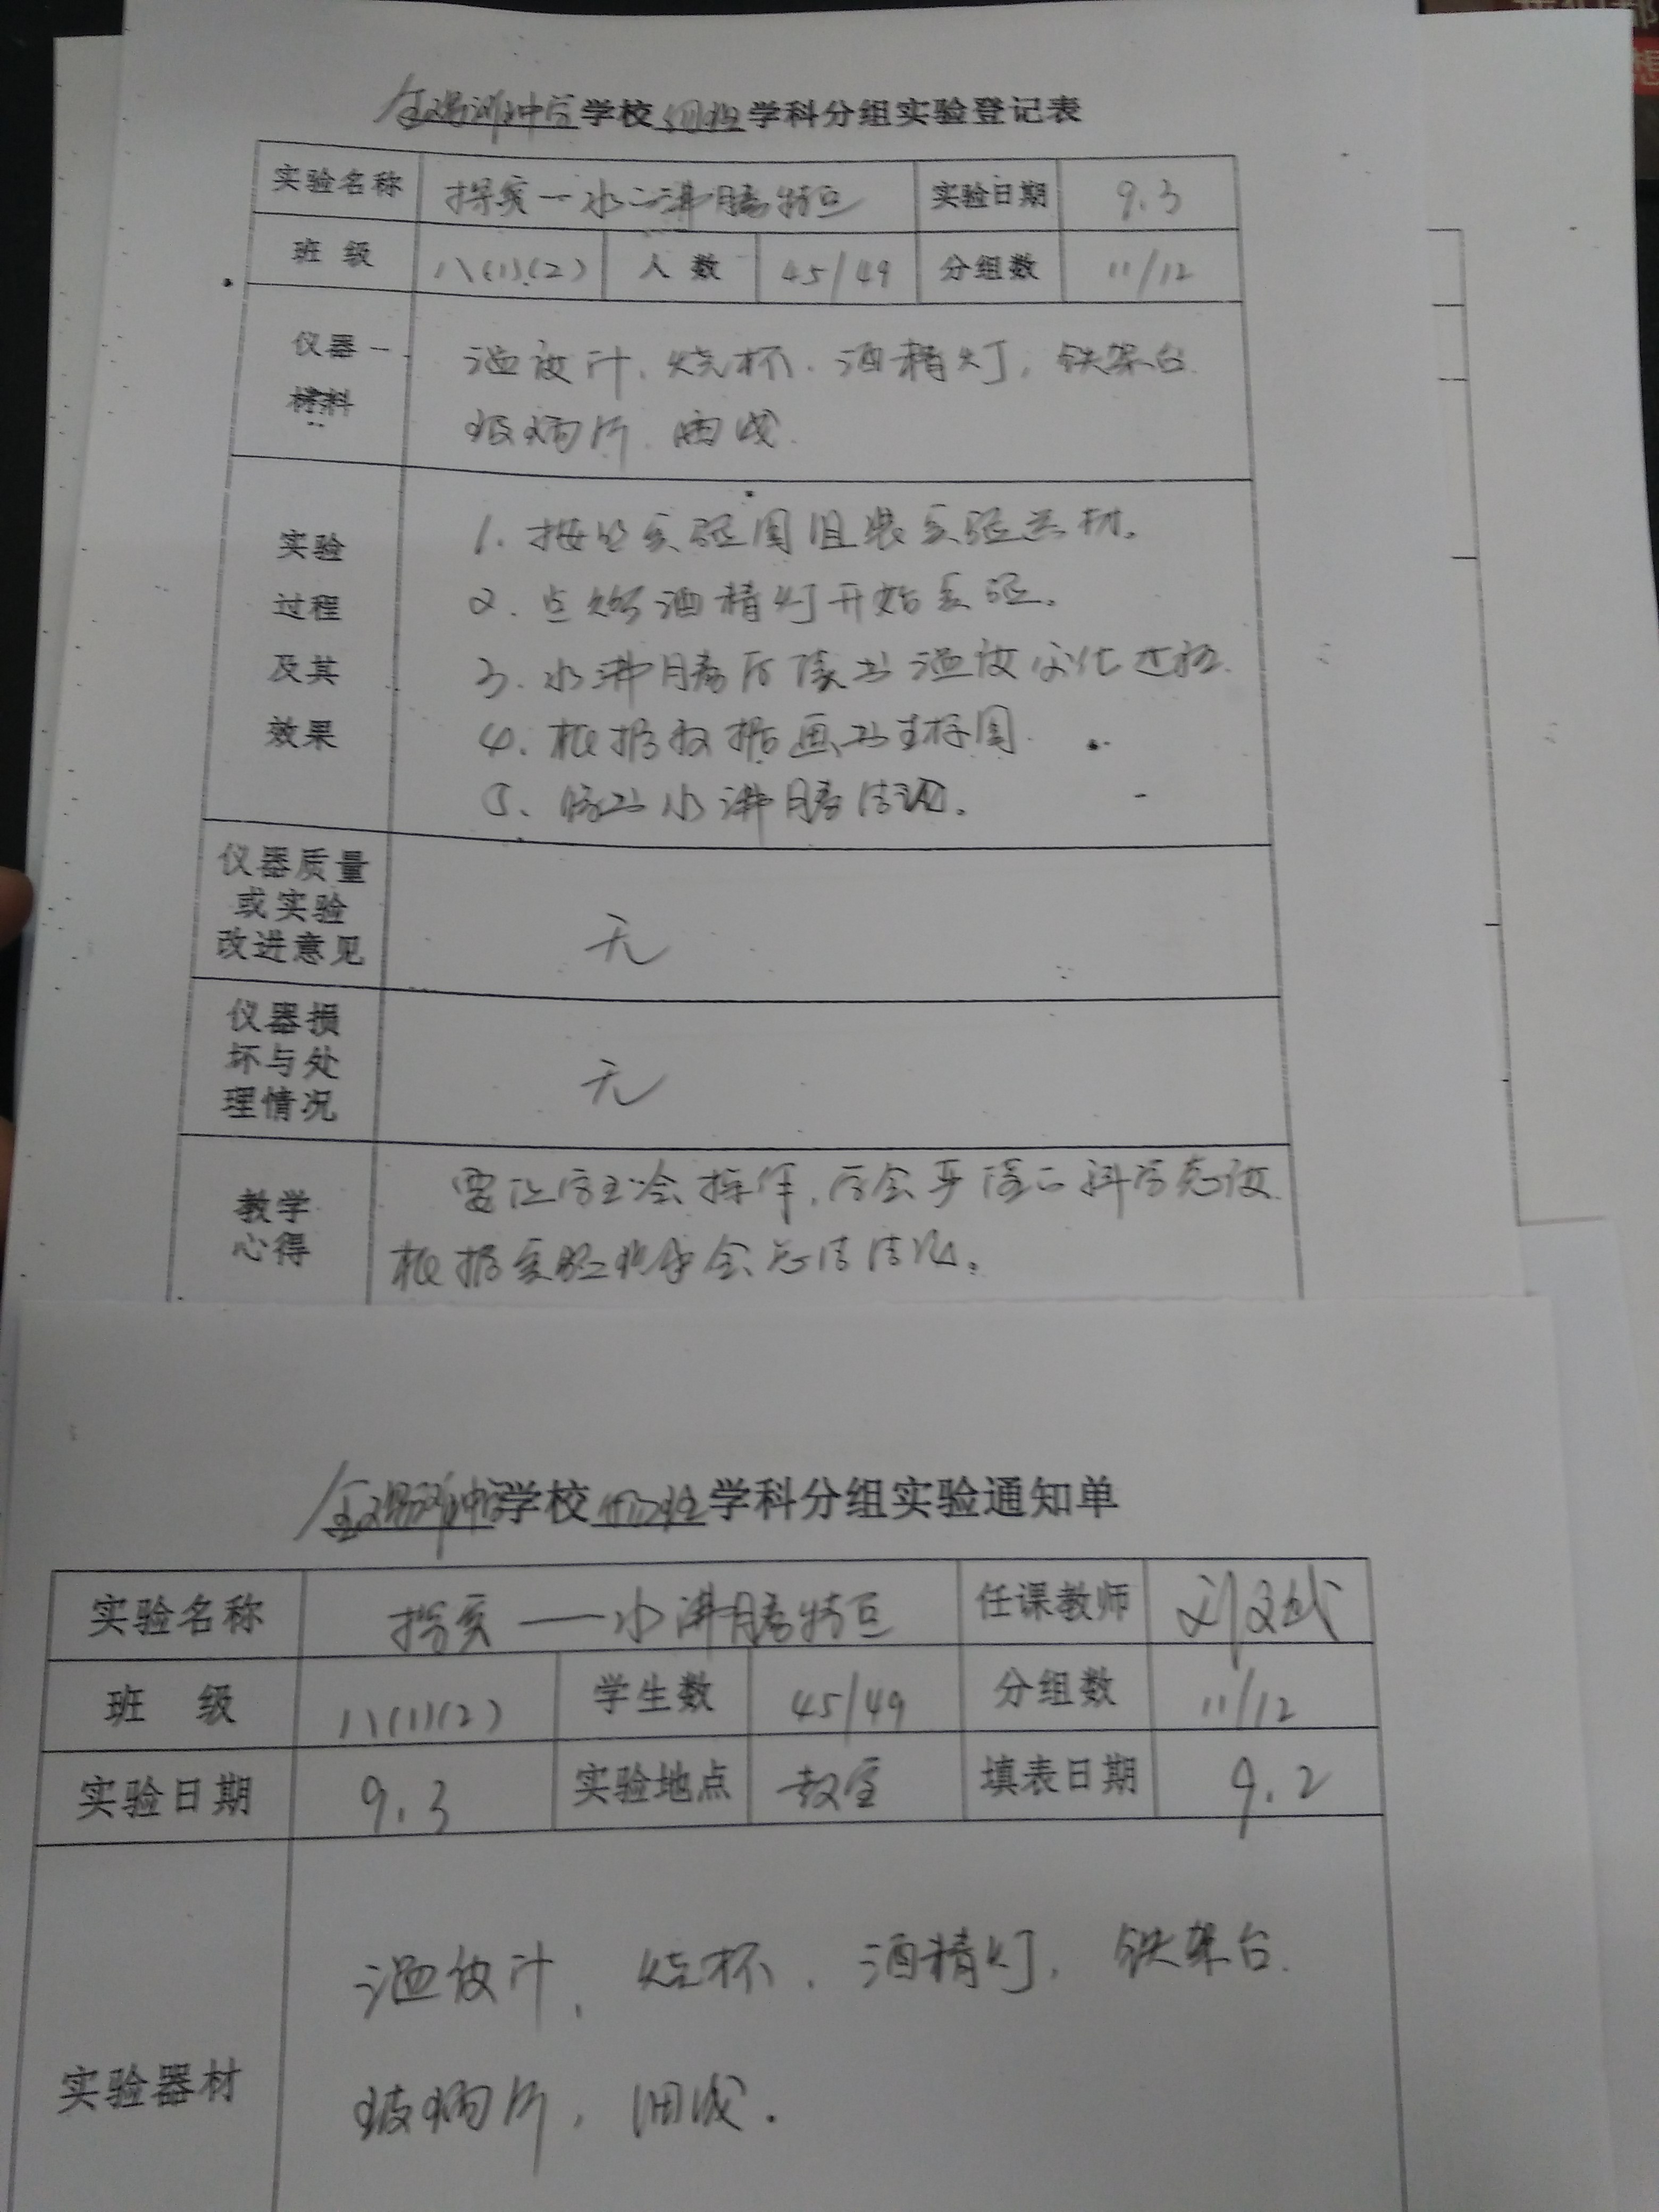 学校物理学科分组实验登记表
实验名称 探究一水沸腾特点 实验日期 9.3
班 级 八(1)(2) 人 数 45/49 分组数 11/12
仪器 温度计、烧杯、酒精灯、铁架台
材料 玻璃片、细线
实验 1、按照实验图组装实验器材。
过程 2、点燃酒精灯开始实验。
及其 3、水沸腾后读出温度变化过程
效果 4、根据数据画出坐标图
5、得出水沸腾结论。
仪器质量
或实验
改进意见 无
仪器损
坏与处
理情况 无
教学 要让学生会操作,
心得 根据实验学会总结结论。
学校物理学科分组实验通知单
实验名称 探究——水沸腾特点 任课教师 刘文武
班 级 八(1)(2) 学生数 45/49 分组数 11/12
实验日期 9.3 实验地点 教室 填表日期 9.2
温度计、烧杯、酒精灯、铁架台
实验器材 玻璃片、细线.